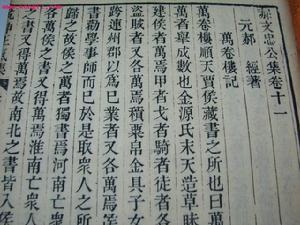 郝文忠公集卷十一
元郝 經著
萬卷樓記
萬卷樓順天賈侯藏書之所也曰萬
萬者舉成數也金源氏末天造草昧
建侯者萬焉甲者戈者騎者徒者各
盜賊者又各萬焉積粟帛金具子女
跨連州郡以爲己業者又各萬焉
勸學事師而已於是取衆人之所
歸之故侯之萬者獨書焉河南亡衆
各萬焉侯之書又得萬焉淮南亡衆
之書又得萬焉故南北之書皆入侯